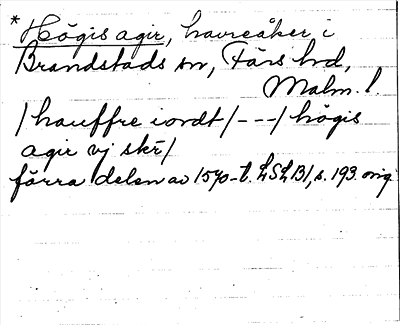 * Högis agir, havreåker i
Brandstads sn, Färs hd,
Malm. l.
/hauffre iordt/---/högis
agir vj skr/
förra delen av 1570-t. LSLB1, s. 193. orig